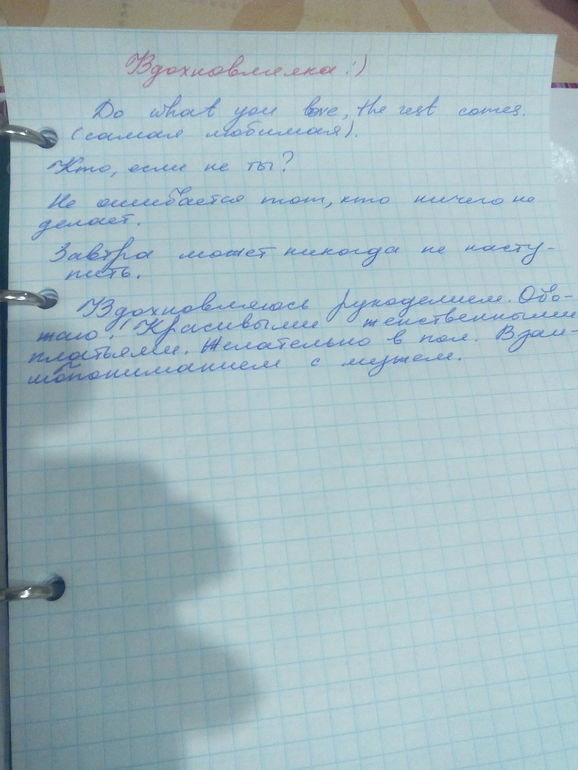 Вдохновлялка :)
Do what you love, the rest comes.
(самая любимая).
Кто, если не ты?
Не ошибается тот, кто ничего не
делает.
Завтра может никогда не насту-
пить.
Вдохновляюсь рукоделием. Обо-
жаю! Красивыми женственными
платьями. Желательно в пол. Взаи-
мопониманием с мужем.